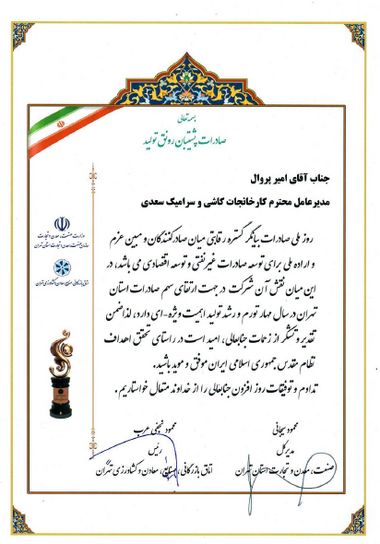 بسمه تعالی
صادرات پشتیبان رونق تولید
جناب آقای امیر پروال
مدیرعامل محترم کارخانجات کاشی و سرامیک سعدی
وزارت صنعت، معدن و تجارت
سازمان صنعت، معدن و تجارت استان تهران
اتاق بازرگانی، صنایع، معادن و کشاورزی تهران
روز ملی صادرات بیانگر گستره رقابتی میان صادرکنندگان و مبین عزم
و اراده ملی برای توسعه صادرات غیرنفتی و توسعه اقتصادی می باشد، در
این میان نقش آن شرکت در جهت ارتقای سهم صادرات استان
تهران در سال مهار تورم و رشد تولید اهمیت ویژه-ای دارد، لذا ضمن
تقدیر و تشکر از زحمات جنابعالی، امید است در راستای تحقق اهداف
نظام مقدس جمهوری اسلامی ایران موفق و موید باشید.
تداوم و توفیقات روز افزون جنابعالی را از خداوند متعال خواستاریم.
محمود سیجانی
مدیرکل
صنعت، معدن و تجارت استان تهران
محمود نجفی عرب
رئیس
اتاق بازرگانی، صنایع، معادن و کشاورزی تهران